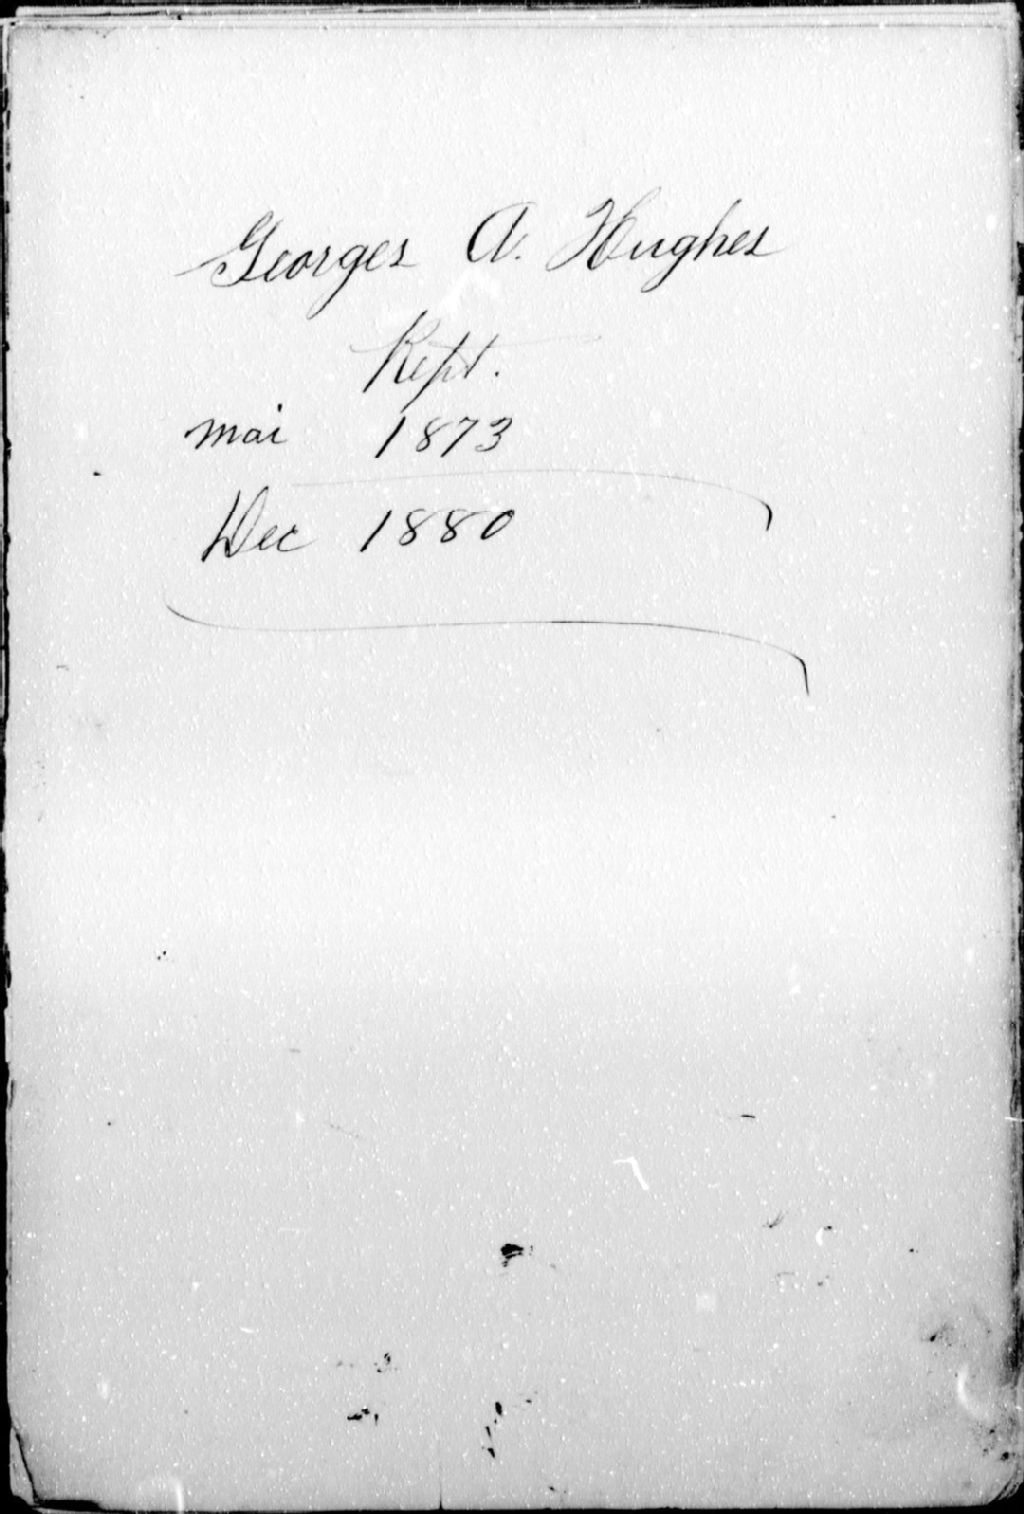 Georges A. Hughes
Kept.
mai 1873
Dec 1880